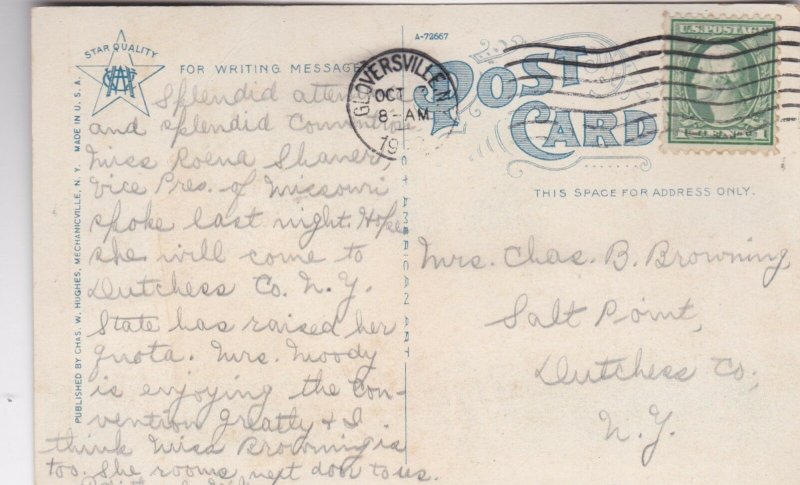 STAR QUALITY
A-72667
FOR WRITING MESSAGE
POST CARD
U.S. POSTAGE
GLOVERSVILLE N.
OCT
8-AM
19
THIS SPACE FOR ADDRESS ONLY.
PUBLISHED BY CHAS. W. HUGHES, MECHANICVILLE, N. Y. MADE IN U. S. A.
AMERICAN ART
Splendid
and splendid Convention
Miss Roena Shaner,
Vice Pres. of Missouri
spoke last night. Hope
she will come to
Dutchess Co. N.Y.
State has raised her
quota. Mrs. Moody
is enjoying the Con-
vention greatly & I
think Miss Browning is
too. She rooms next door to us.
Mrs. Chas. B. Browning,
Salt Point,
Dutchess Co.,
N.Y.